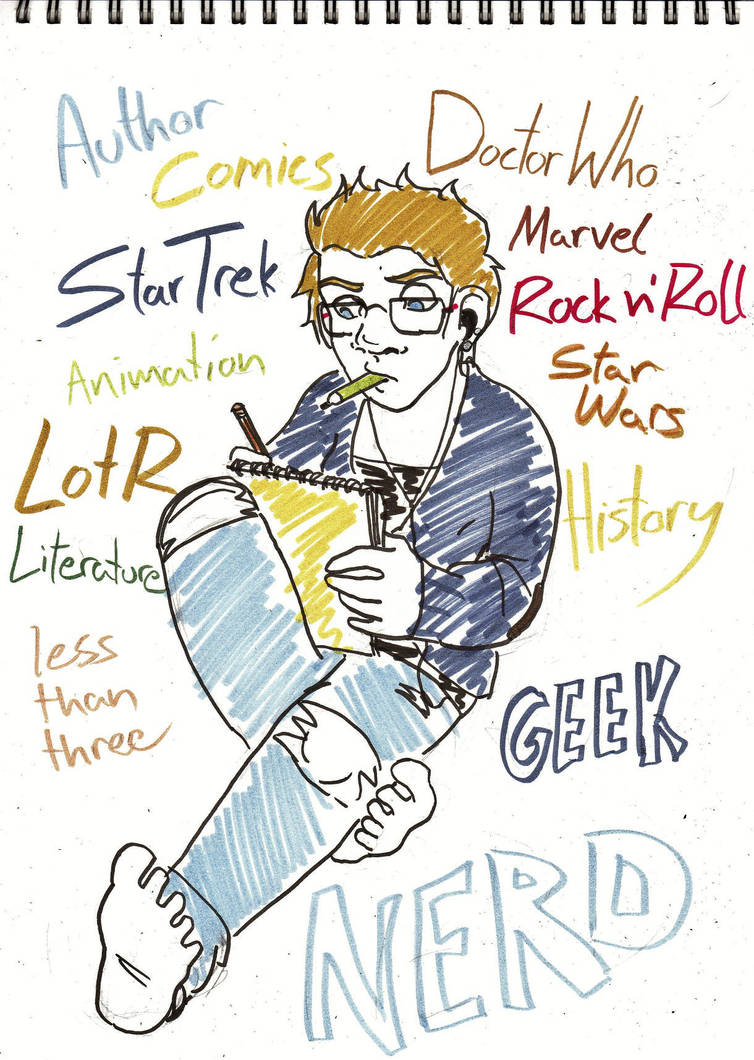 Author
Comics
Star Trek
Animation
LotR
Literature
less
than
three
Doctor Who
Marvel
Rock n' Roll
Star
Wars
History
GEEK
NERD